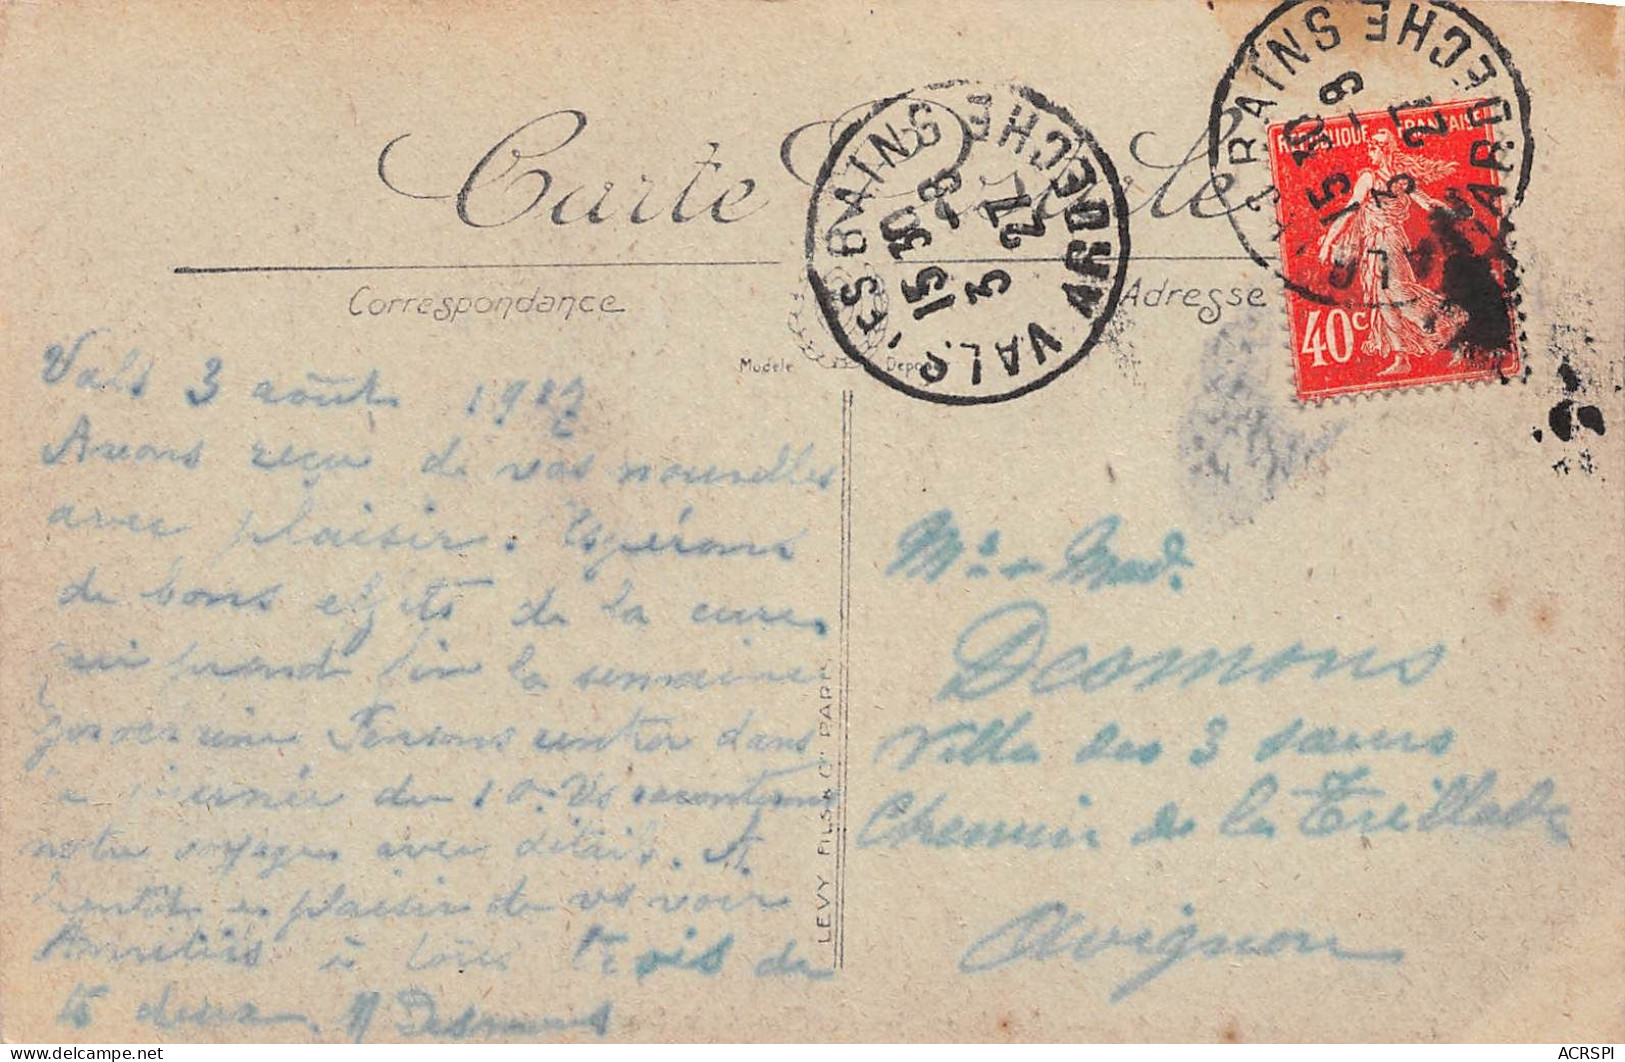 Carte Postale
Correspondance
Adresse
Modèle Déposé
VALS LES BAINS ARDECHE
15 30
3 -8
27
VALS LES BAINS ARDECHE
15 30
3 -8
27
REPUBLIQUE FRANÇAISE
40c
LEVY FILS & Cie PARIS
Vals 3 août 1927
Avons reçu de vos nouvelles
avec plaisir. Espérons
de bons effets de la cure
qui prend fin la semaine
prochaine Pensons rentrer dans
la journée du 10. Vs raconterons
notre voyage avec détails. A
bientôt le plaisir de vs voir
Amitiés à tous trois de
ts deux. Desmons
Mr & Mad.
Desmons
Villa des 3 sœurs
Chemin de la Treillade
Avignon
ACRSPI